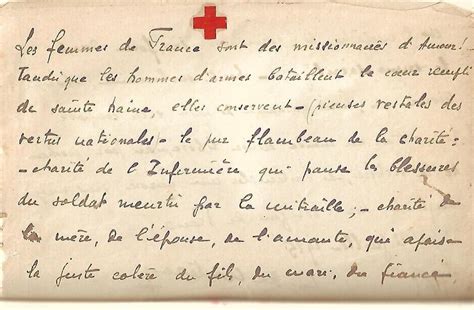 Les femmes de France sont des missionnaires d'Amour!
Tandis que les hommes d'armes bataillent le cœur rempli
de sainte haine, elles conservent - (pieuses vestales des
vertus nationales - le pur flambeau de la charité:
- charité de l'Infirmière qui panse les blessures
du soldat meurtri par la mitraille; - charité de
la mère, de l'épouse, de l'amante, qui apaise
la juste colère du fils, du mari, du fiancé